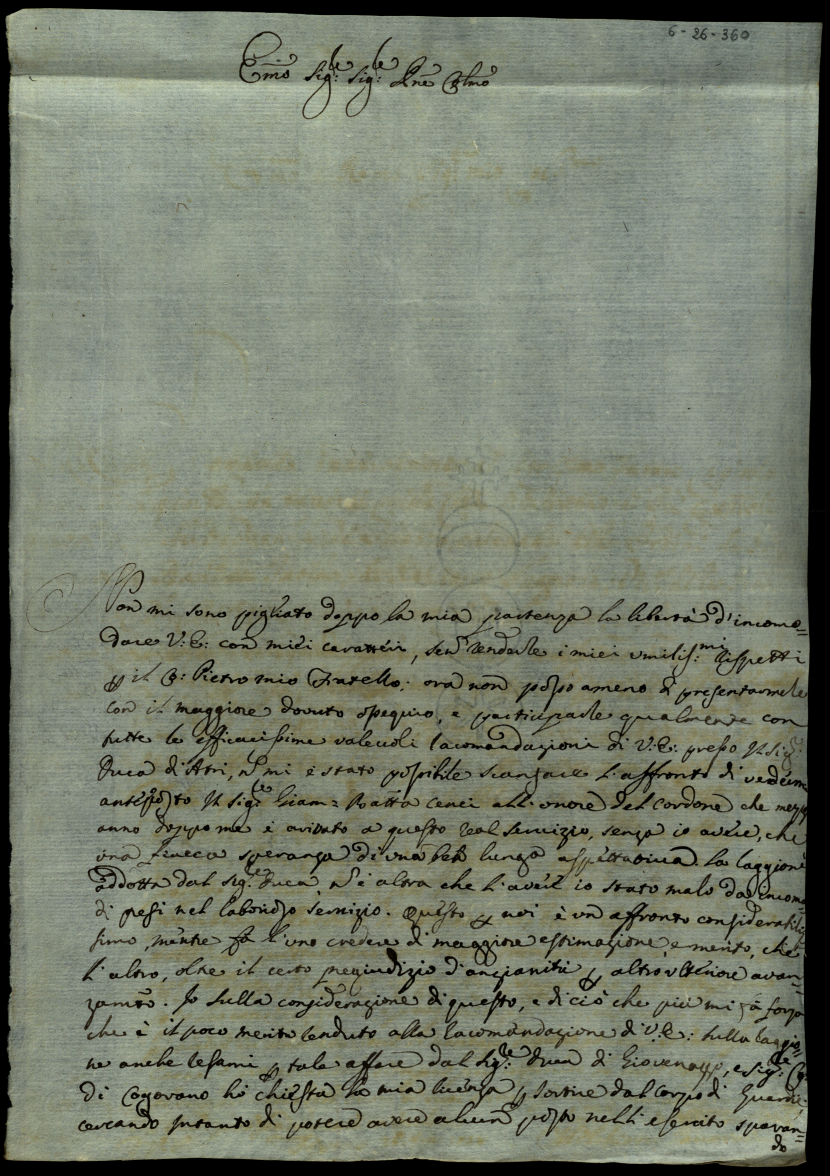 6-26-360
Emo Sig:re Sig:re Pne Colmo
Non mi sono pigliato doppo la mia partenza la libertà d'incomo=
dare V:E: con miei caratteri, renderle i miei umilis:mi rispetti
il Pietro mio Fratello; ora non posso ameno di presentarmele
con il maggiore dovuto ossequio, e participarle qualmente con
tutte le efficacissime valevoli racomandazioni di V:E: presso Il Sig:r
Duca di Atri, nō mi è stato possibile scansare l'affronto di vedermi
anteposto Il Sig:re Giam= Batta Cenci all'onore del Cordone che mezzo
anno doppo me è arivato a questo real Servizio, senza io avere, che
una secca speranza di una ben lunga aspettativa. La raggione
addotta dal Sig:re Duca nō è altra che l'aver io stato malo da
di pesi nel laborioso servizio. Questo p noi è un affronto considerabilis
simo, mentre fà l'uno credere di maggiore estimazione, e merito, che
l'altro, oltre il certo pregiudizio d'anzianità p altro ulteriore avan=
zamto. Io sulla considerazione di questo, e di ciò che più mi fà forza
che è il poco merito renduto alla racomandazione di V:E: sulla raggio=
ne anche p tale affare dal Sig:re Duca di Giovenazzo, e Sig:re
di hò chiesta la mia licenza p sortire dal Corpo di Guardie,
cercando intanto di potere avere alcun posto nell'esercito speran=
do